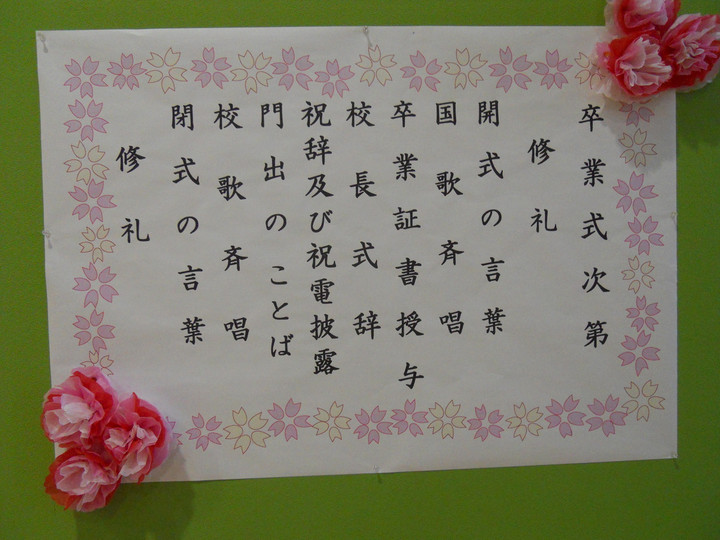 卒業式次第
修礼
開式の言葉
国歌斉唱
卒業証書授与
校長式辞
祝辞及び祝電披露
門出のことば
校歌斉唱
閉式の言葉
修礼